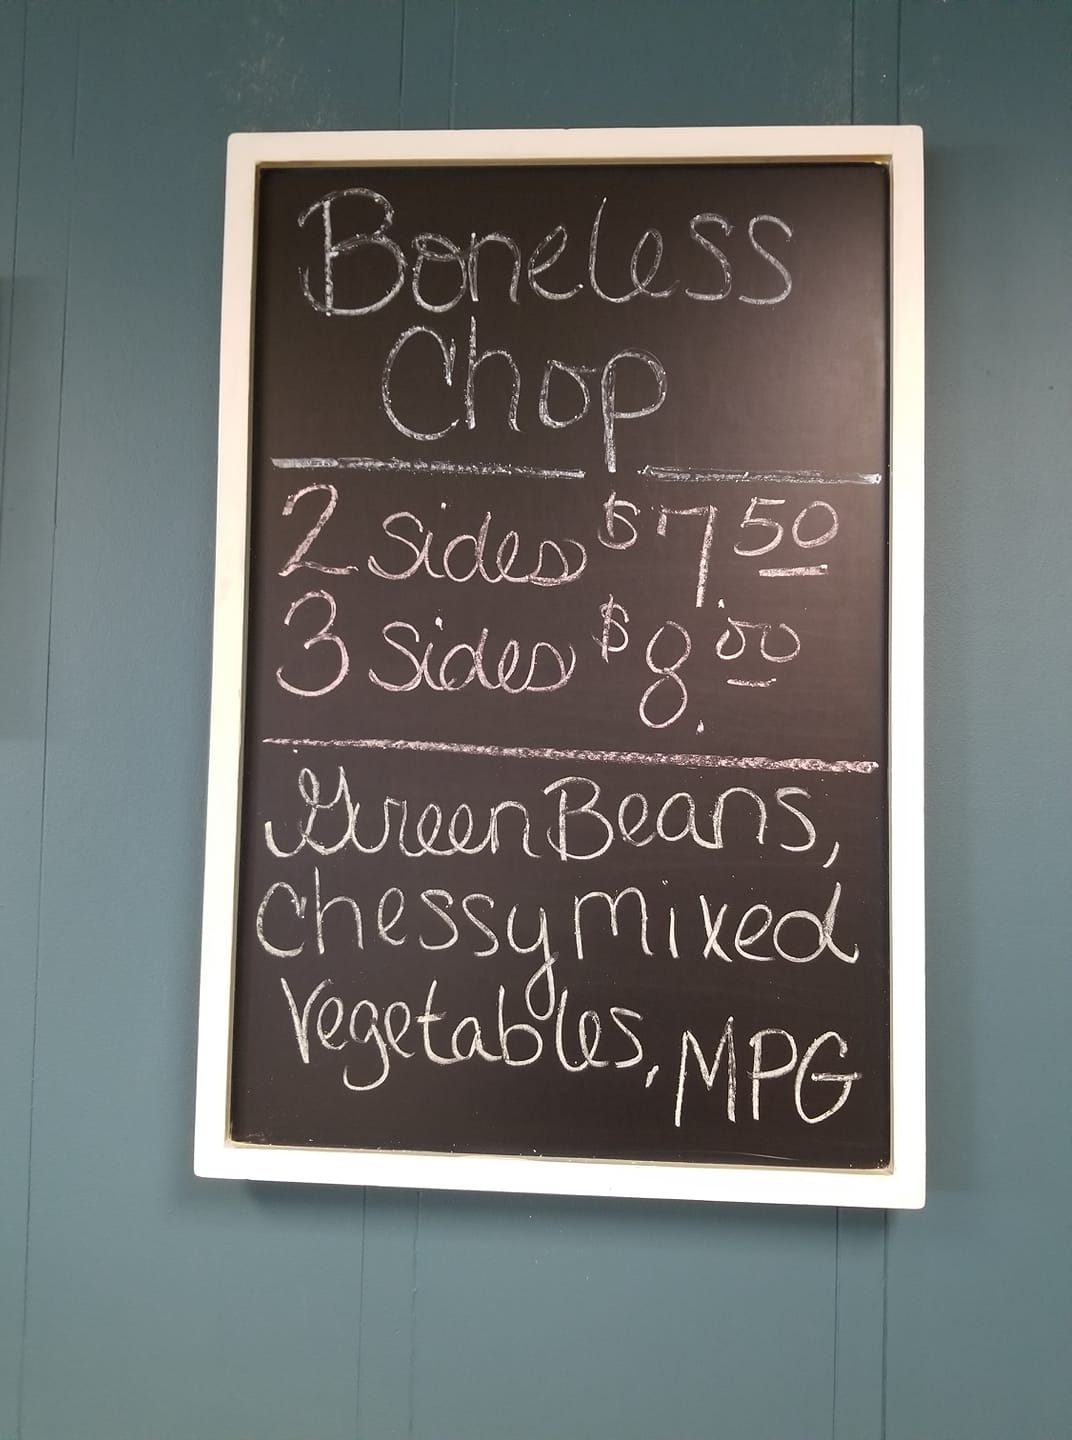 Boneless
Chop
2 Sides $7.50
3 Sides $8.00
Green Beans,
Chessy mixed
Vegetables, MPG